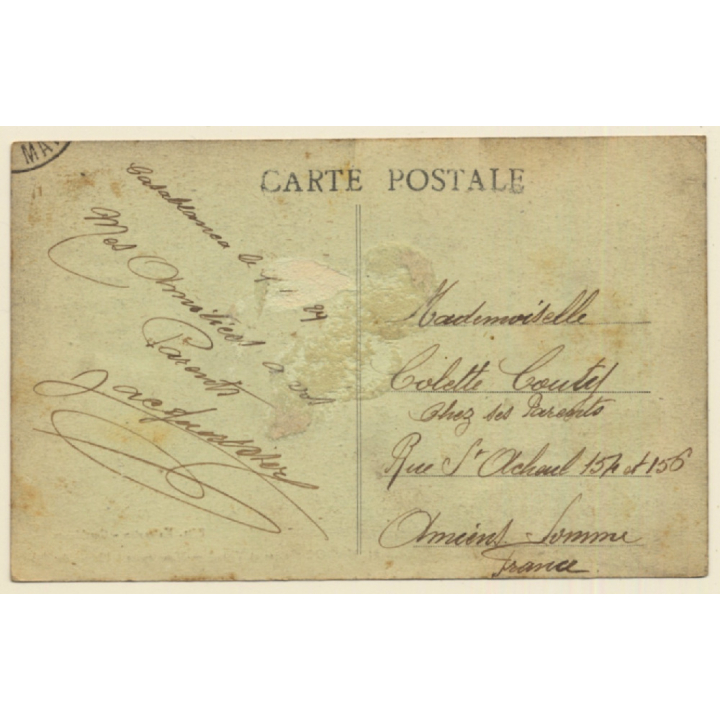 MA
CARTE POSTALE
Casablanca le
Mes Amitiées a vos
Parents
Mademoiselle
Colette
chez ses Parents
Rue St Acheul 154 et 156
Amiens - Somme
France